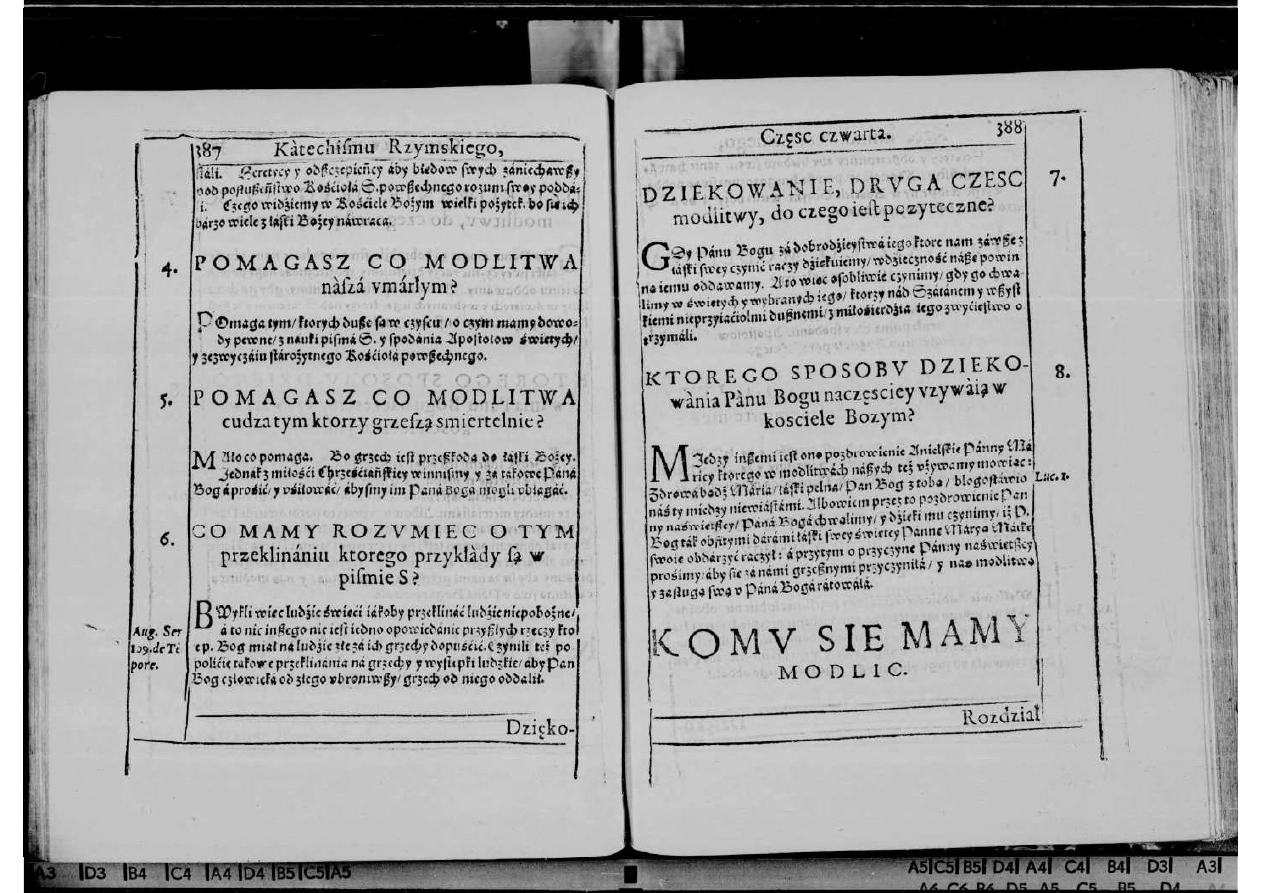 387 Kátechiſmu Rzymskiego,
ſtáli. Heretycy y odſzczepieńcy aby błedow ſwych zániechawſzy
pod poſłuſzeńſtwo Kośćiołá S. powſzechnego rozum ſwoy poddá-
i. Czego widźiemy w Kośćiele Bożym wielki pożytek. bo ſie ich
bárzo wiele z łáſki Bożey náwraca.
4. POMAGASZ CO MODLITWA
náſzá vmárłym?
POmaga tym/ ktorych duſze ſą w czyſcu/ o czym mamy dowo-
dy pewne/ z nauki piſmá S. y ſpodánia Apoſtołow świetych/
y zezwyczáiu ſtárożytnego Kośćiołá powſzechnego.
5. POMAGASZ CO MODLITWA
cudza tym ktorzy grzeſzą smiertelnie?
MAło co pomaga. Bo grzech ieſt przeſzkodą do łáſki Bożey.
Jednák z miłośći Chrześćiáńſkiey winniſmy y zá tákowe Páná
Bogá prośić/ y vśiłowáć/ ábyſmy im Páná Bogá mogli vbłagáć.
6. CO MAMY ROZVMIEC O TYM
przeklinániu ktorego przykłády ſą w
piſmie S?
BWykli wiec ludźie świeći iákoby przeklináć ludźie niepobożne/
á to nic inſzego nie ieſt iedno opowiedánie przyſzłych rzeczy kto
Aug. Ser
re p. Bog miał ná ludźie złe zá ich grzechy dopuśćić. Czynili też po
109. de Tē
policie tákowe przeklinánia ná grzechy y wyſtepki ludzkie/ aby Pan
pore.
Bog człowieká od złego vbroniwſzy/ grzech od niego oddalił.
Dzięko-
Częsc czwarta. 388
DZIEKOWANIE, DRVGA CZESC 7.
modlitwy, do czego ieſt pozyteczne?
GDy Pánu Bogu zá dobrodźieyſtwá iego ktore nam záwſze z
łáſki ſwey czynić raczy dźiekuiemy/ wdźieczność náſze powin
ną iemu oddawamy. A to wiec oſobliwie czynimy/ gdy go chwa-
limy w świetych y wybránych iego/ ktorzy nád Szátánem y wſzyſt
kiemi nieprzyiaćiołmi duſznemi/ z miłośierdźia iego zwyćieſtwo o
trzymáli.
KTOREGO SPOSOBV DZIEKO- 8.
wánia Pánu Bogu naczęsciey vzywáią w
kosciele Bozym?
MJedzy inſzemi ieſt ono pozdrowienie Anielſkie Pánny Má
ryey ktorego w modlitwách náſzych też vżywamy mowiąc:
Zdrowa bądź Maria/ łáſki pełna/ Pan Bog z tobą/ błogoſłáwio Luc. 1.
náś ty miedzy niewiáſtámi. Albowiem przez to pozdrowienie Pan
ny naświetſzey/ Páná Bogá chwalimy/ y dźieki mu czynimy/ iż P.
Bog ták obfitymi dárámi łáſki ſwey świetey Pánne Márya Mátke
ſwoie obdárzyć raczył: á przytym o przyczyne Pánny naświetſzey
prośimy/ áby ſie zá námi grzeſznymi przyczyniłá/ y nas modlitwą
y zaſługą ſwą v Páná Bogá rátowáłá.
KOMV SIE MAMY
MODLIC.
Rozdział
A3 D3 B4 C4 A4 D4 B5 C5 A5
A5 C5 B5 D4 A4 C4 B4 D3 A3